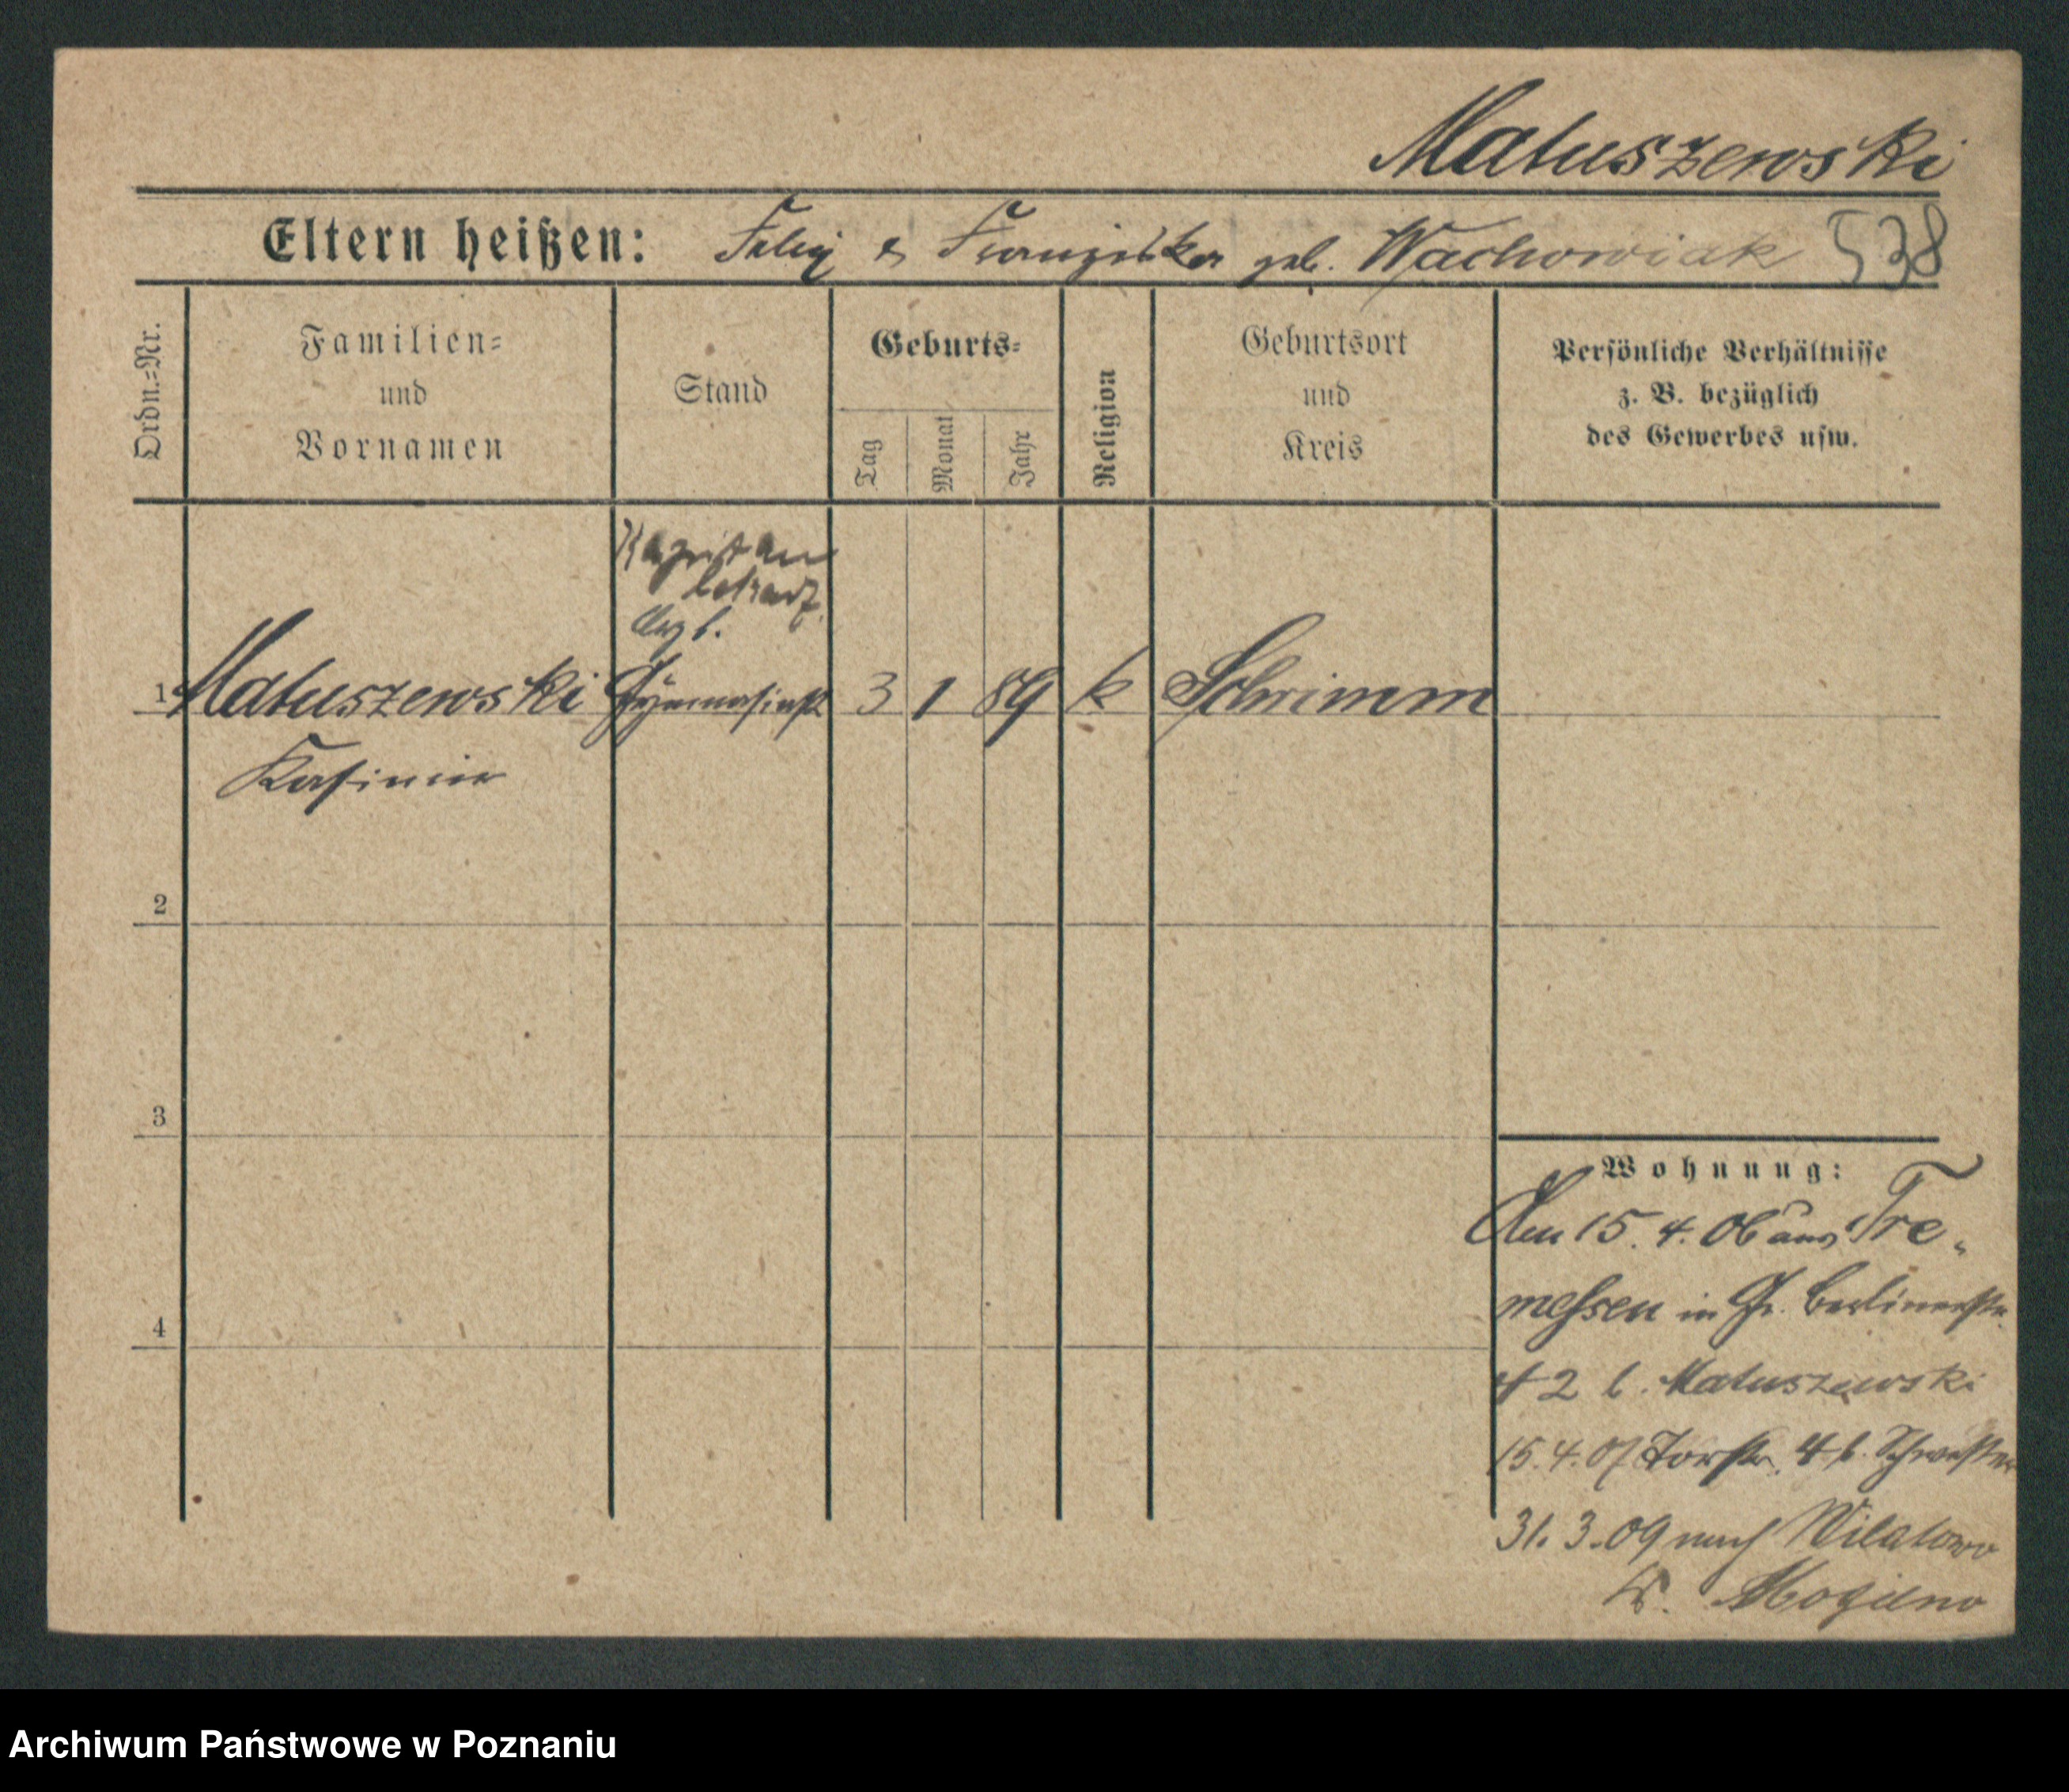 Matuszewski
Eltern heißen: Felix & Franziska geb. Wachowiak 538
Ordn.-Nr.
Familien-
und
Vornamen
Stand
Geburts-
Tag
Monat
Jahr
Religion
Geburtsort
und
Kreis
Persönliche Verhältnisse
z. B. bezüglich
des Gewerbes usw.
1 Matuszewski Gymnasiast 3 1 89 k Schrimm
Kasimir
2
3
4
Wohnung:
Am 15.4.06 aus Tre-
messen in Gr. Berlinerstr.
42 b. Matuszewski
15.4.07 Torstr. 4 b. Schwester
31.3.09 nach Wilatowo
Kr. Mogilno
Archiwum Państwowe w Poznaniu